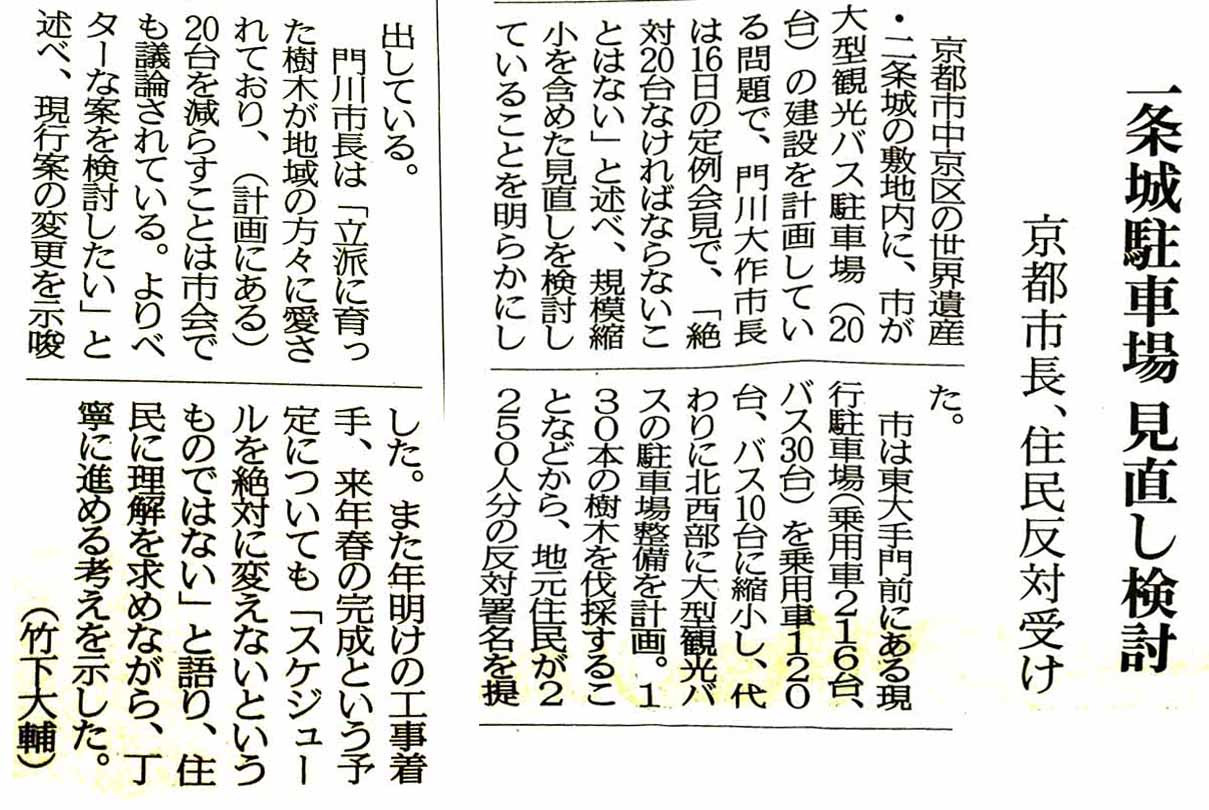 二条城駐車場 見直し検討
京都市長、住民反対受け
京都市中京区の世界遺産
・二条城の敷地内に、市が
大型観光バス駐車場（20
台）の建設を計画してい
る問題で、門川大作市長
は16日の定例会見で、「絶
対20台なければならないこ
とはない」と述べ、規模縮
小を含めた見直しを検討し
ていることを明らかにし
た。
市は東大手門前にある現
行駐車場（乗用車216台、
バス30台）を乗用車120
台、バス10台に縮小し、代
わりに北西部に大型観光バ
スの駐車場整備を計画。1
30本の樹木を伐採するこ
となどから、地元住民が2
250人分の反対署名を提
出している。
門川市長は「立派に育っ
た樹木が地域の方々に愛さ
れており、（計画にある）
20台を減らすことは市会で
も議論されている。よりベ
ターな案を検討したい」と
述べ、現行案の変更を示唆
した。また年明けの工事着
手、来年春の完成という予
定についても「スケジュー
ルを絶対に変えないという
ものではない」と語り、住
民に理解を求めながら、丁
寧に進める考えを示した。
（竹下大輔）